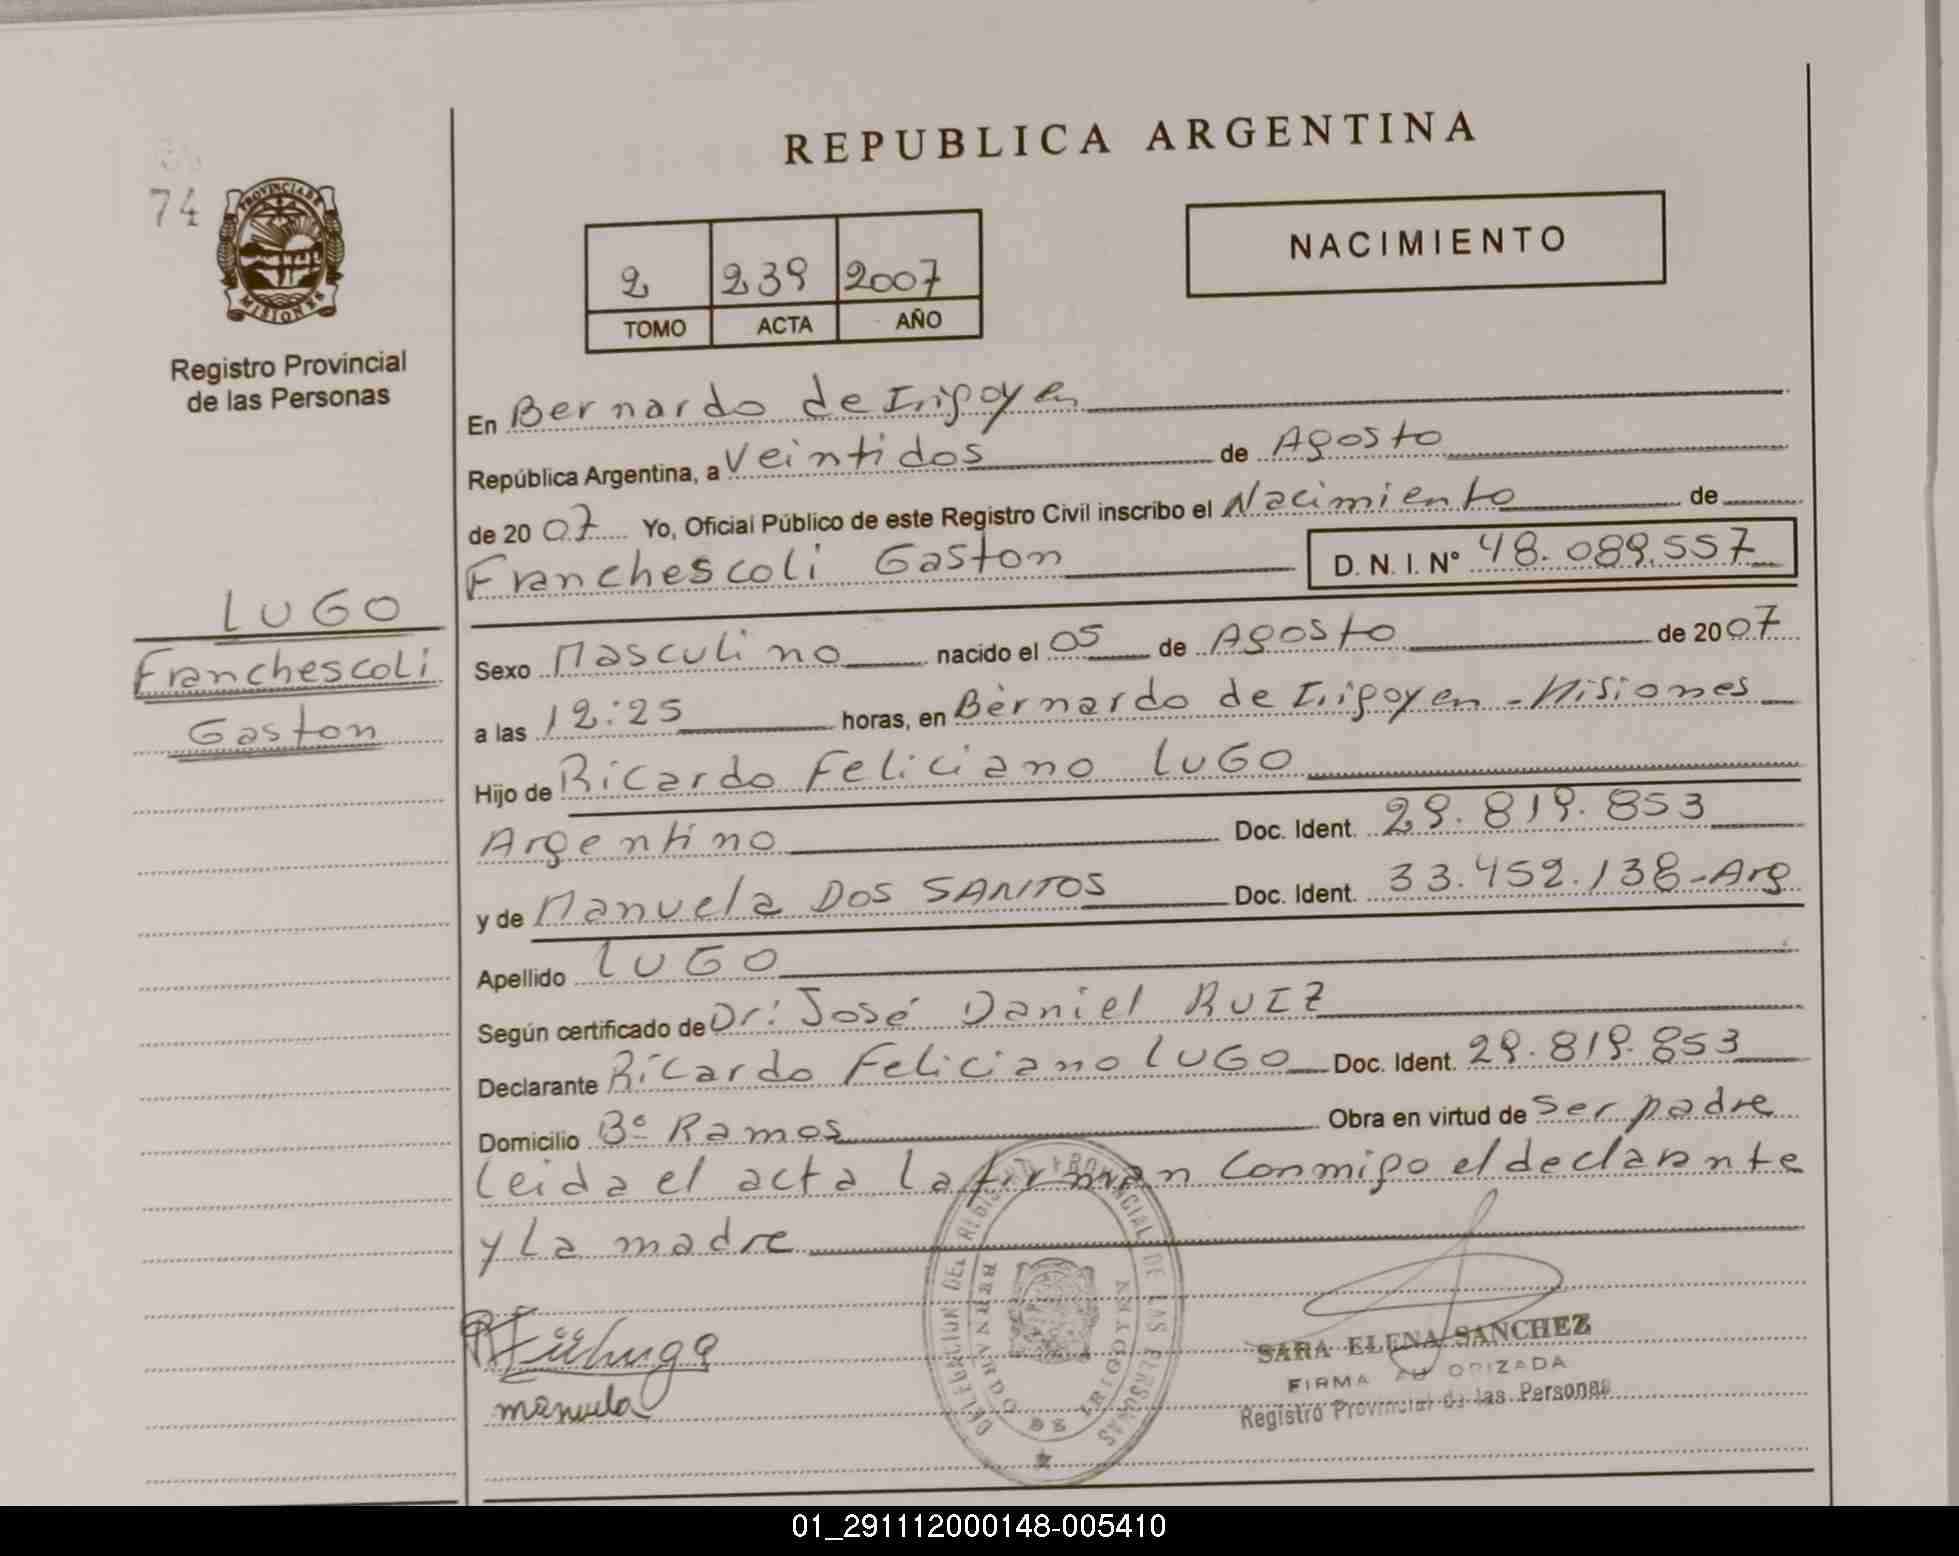 REPUBLICA ARGENTINA
74
PROVINCIA DE
MISIONES
Registro Provincial
de las Personas
2 239 2007
TOMO ACTA AÑO
NACIMIENTO
En Bernardo de Irigoyen
República Argentina, a Veintidos de Agosto
de 20 07 Yo, Oficial Público de este Registro Civil inscribo el Nacimiento de
Franchescoli Gaston D. N. I. Nº 48.089.557
LUGO
Franchescoli
Gaston
Sexo Masculino nacido el 05 de Agosto de 20 07
a las 12:25 horas, en Bernardo de Irigoyen - Misiones
Hijo de Ricardo Feliciano LUGO
Argentino Doc. Ident. 29.819.853
y de Manuela DOS SANTOS Doc. Ident. 33.452.138-Arg
Apellido LUGO
Según certificado de Dr: José Daniel RUIZ
Declarante Ricardo Feliciano LUGO Doc. Ident. 29.819.853
Domicilio Bº Ramos Obra en virtud de Ser padre
Leida el acta la firman Conmigo el declarante
y La madre
manuela
DELEGACION DEL REGISTRO PROVINCIAL DE LAS PERSONAS
BERNARDO DE IRIGOYEN
SARA ELENA SANCHEZ
FIRMA AUTORIZADA
Registro Provincial de las Personas
01_291112000148-005410